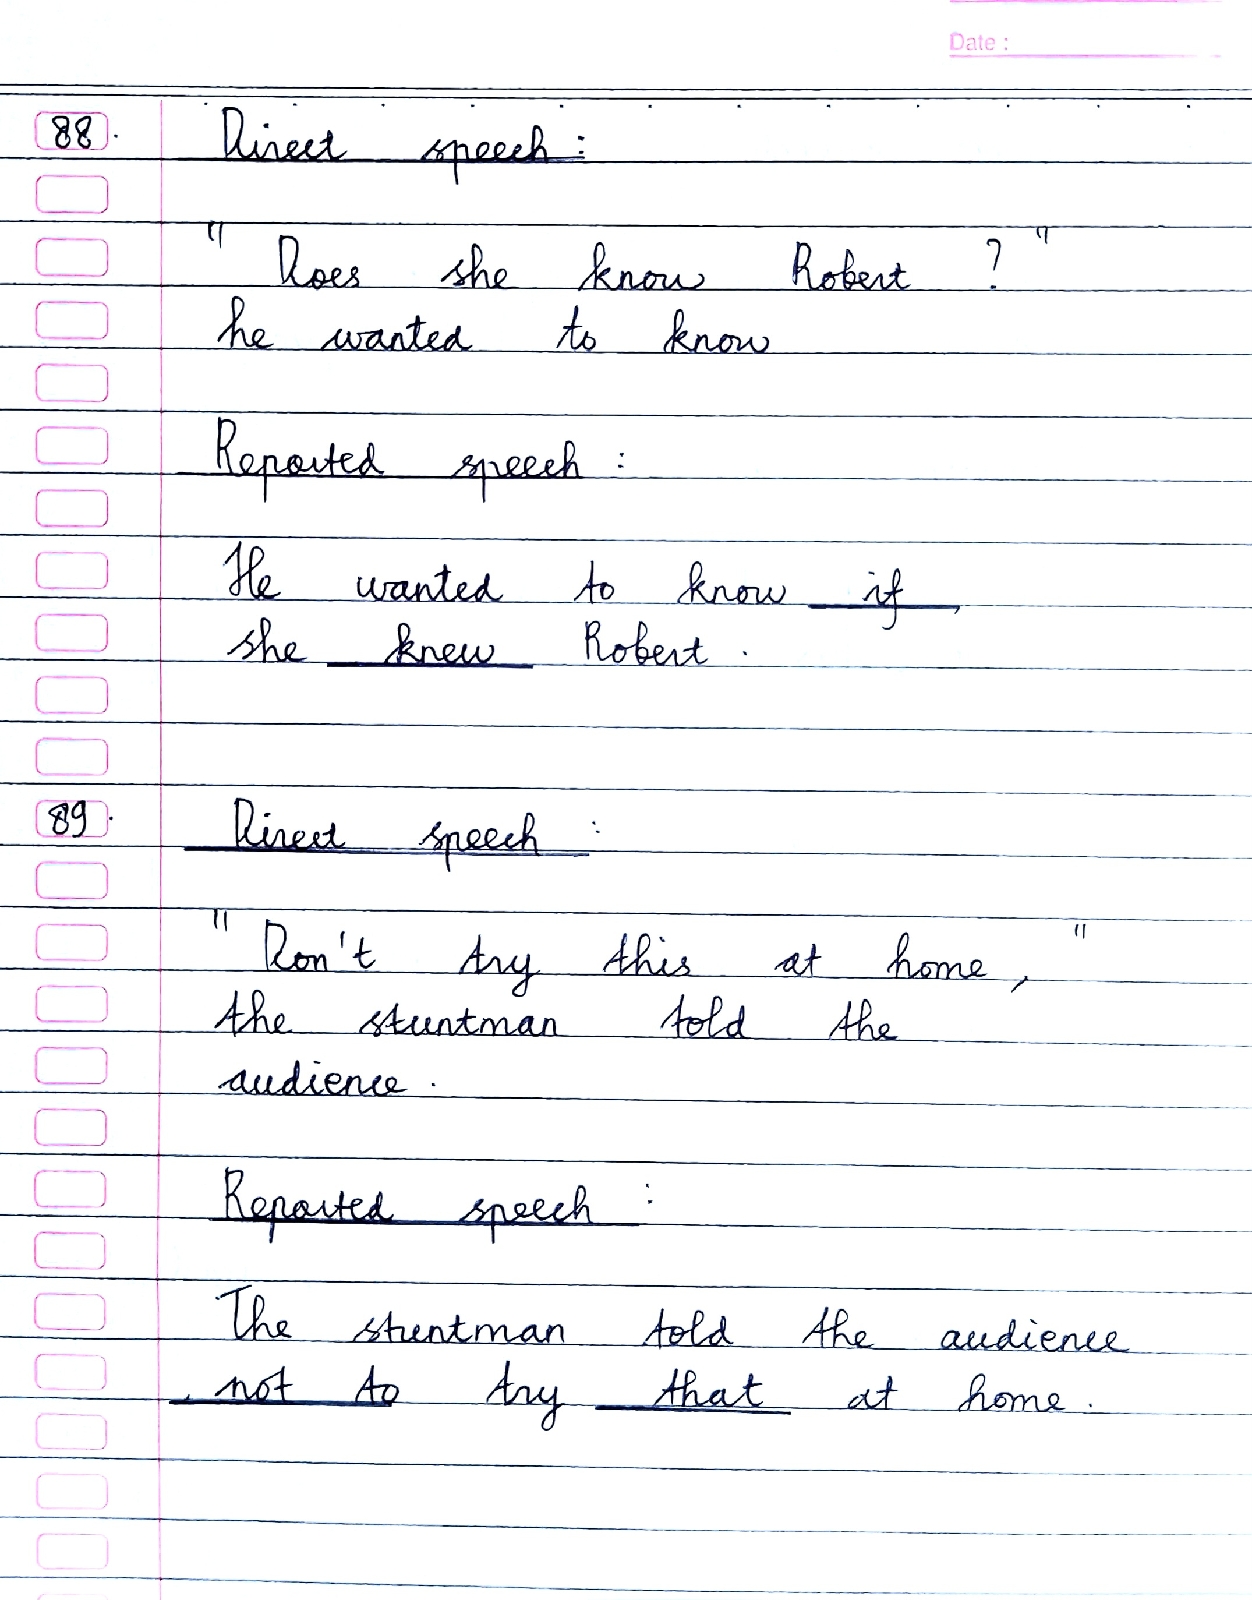 Date :
88. Direct speech :
" Does she know Robert ? "
he wanted to know
Reported speech :
He wanted to know if
she knew Robert .
89. Direct speech :
" Don't try this at home, "
the stuntman told the
audience .
Reported speech :
The stuntman told the audience
not to try that at home .